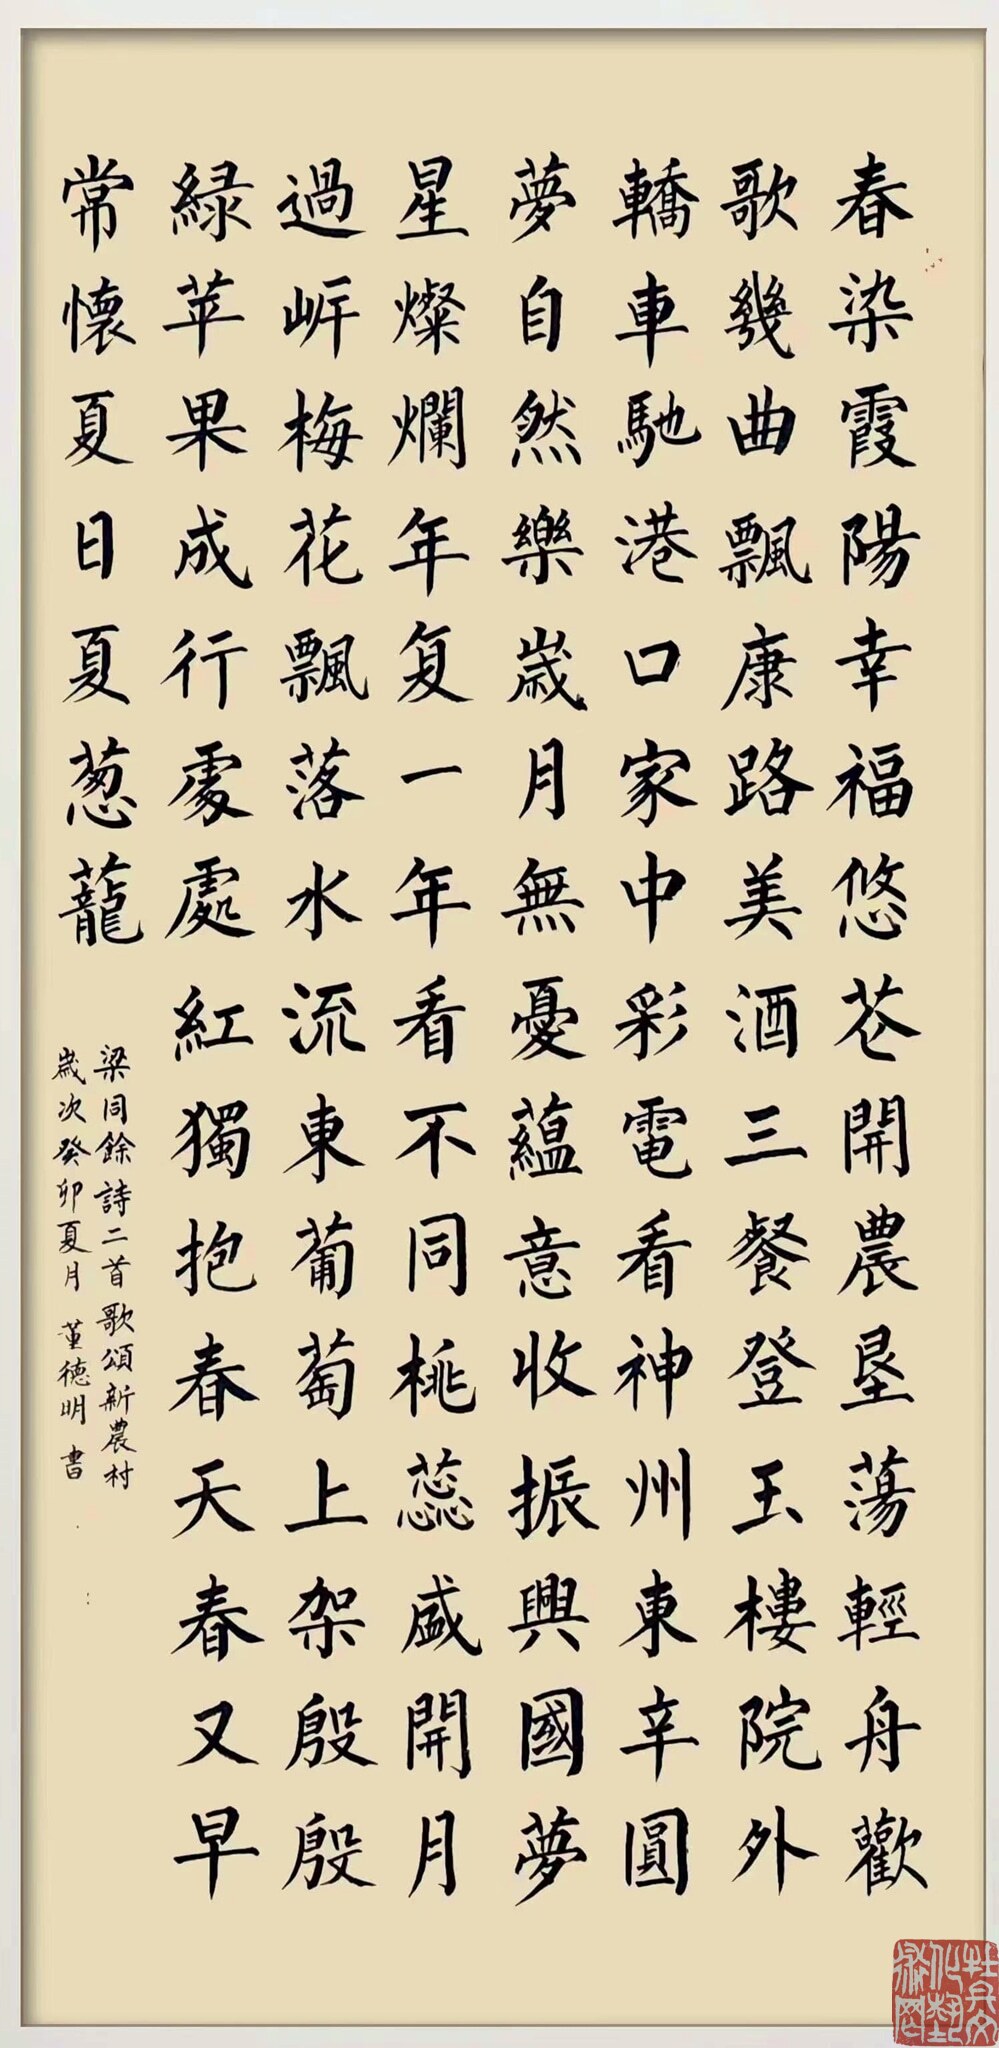 春染霞陽幸福悠花開農墾蕩輕舟歡
歌幾曲飄康路美酒三餐登玉樓院外
轎車馳港口家中彩電看神州東辛圓
夢自然樂歲月無憂蘊意收振興國夢
星燦爛年复一年看不同桃蕊盛開月
過岍梅花飄落水流東葡萄上架殷殷
緑苹果成行處處紅獨抱春天春又早
常懷夏日夏葱蘢
梁同餘詩二首歌頌新農村
歲次癸卯夏月董德明書